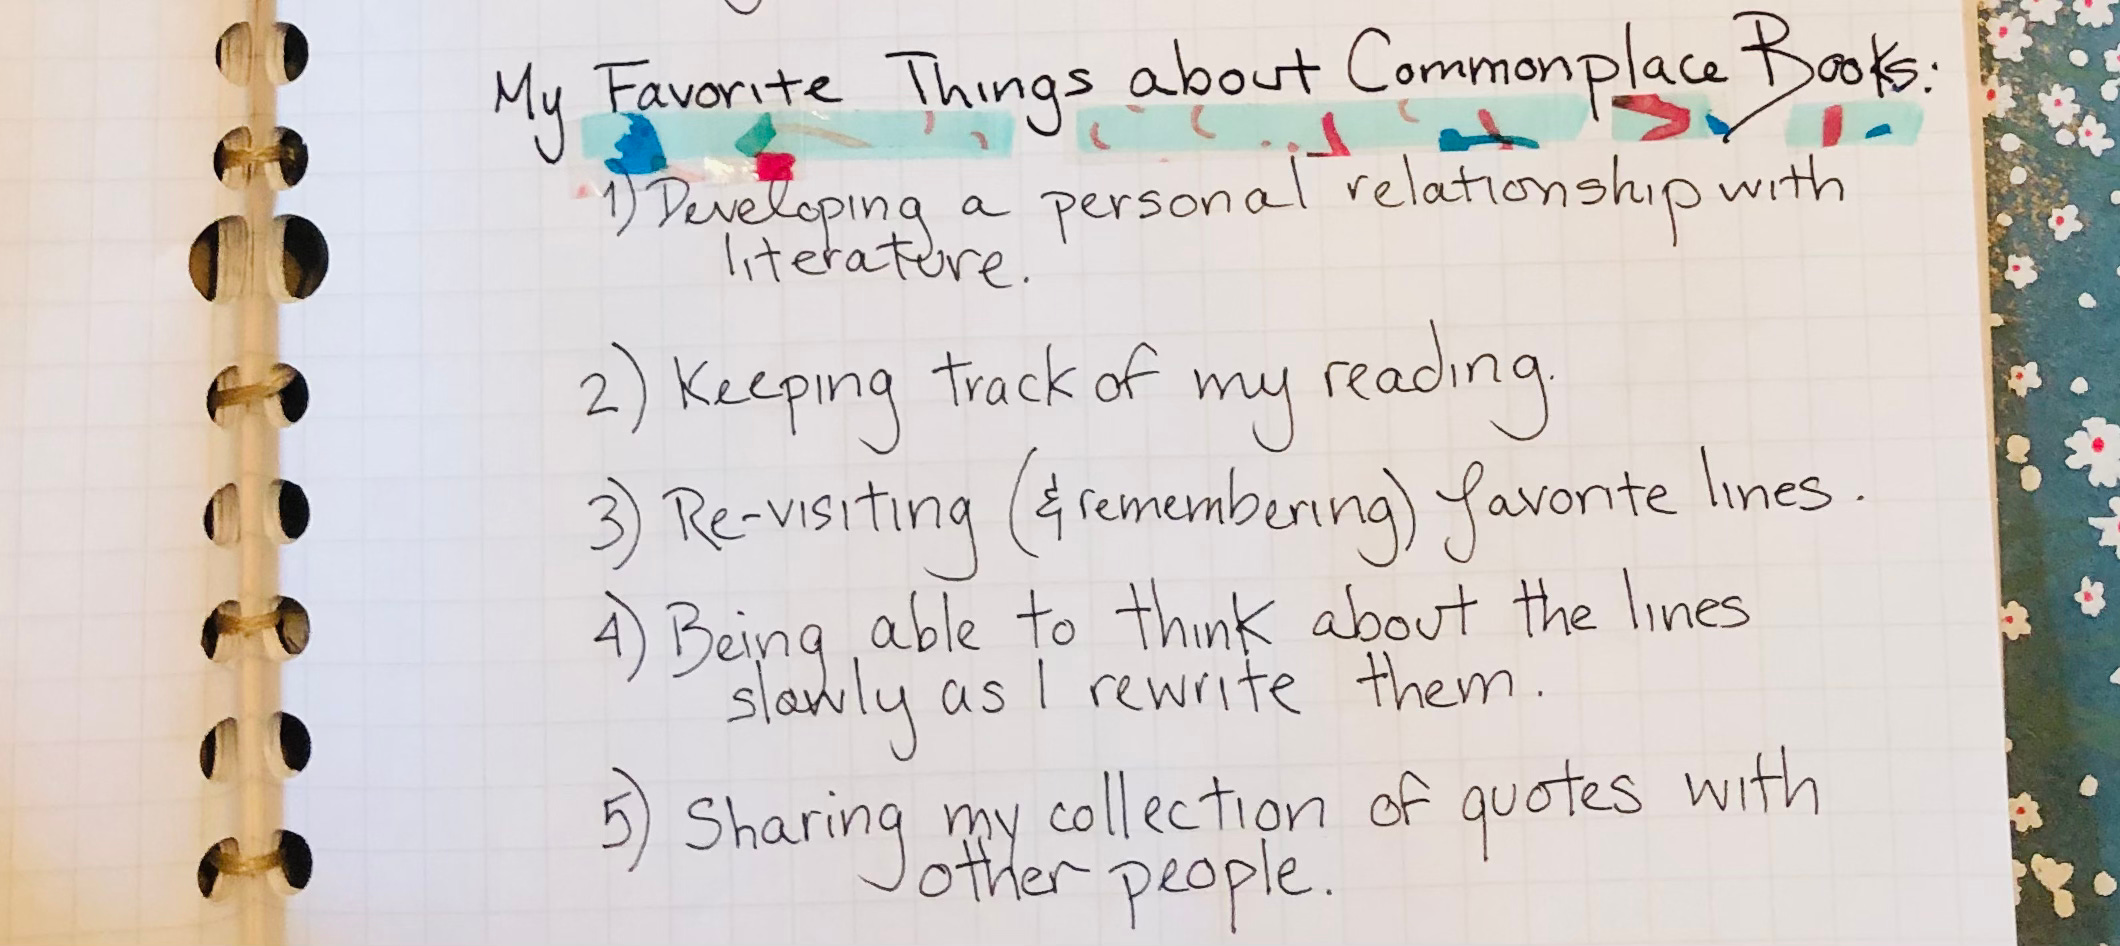 My Favorite Things about Commonplace Books:
1) Developing a personal relationship with
literature.
2) Keeping track of my reading.
3) Re-visiting (& remembering) favorite lines.
4) Being able to think about the lines
slowly as I rewrite them.
5) Sharing my collection of quotes with
other people.